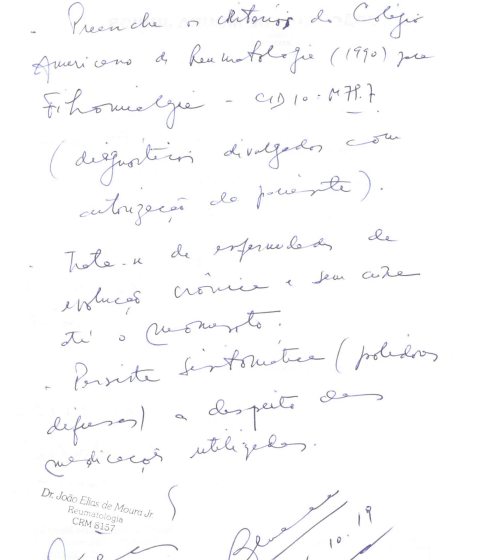 - Preenche os critérios do Colégio
Americano de Reumatologia (1990) para
Fibromialgia - CID 10: M79.7
(diagnósticos divulgados com
autorização do paciente).
- Trata-se de enfermidades de
evolução crônica e sem cura
até o momento.
- Persiste sintomática (polidores
difusas) a despeito das
medicações utilizadas.
Dr. João Elias de Moura Jr
Reumatologia
CRM 6157
10.19